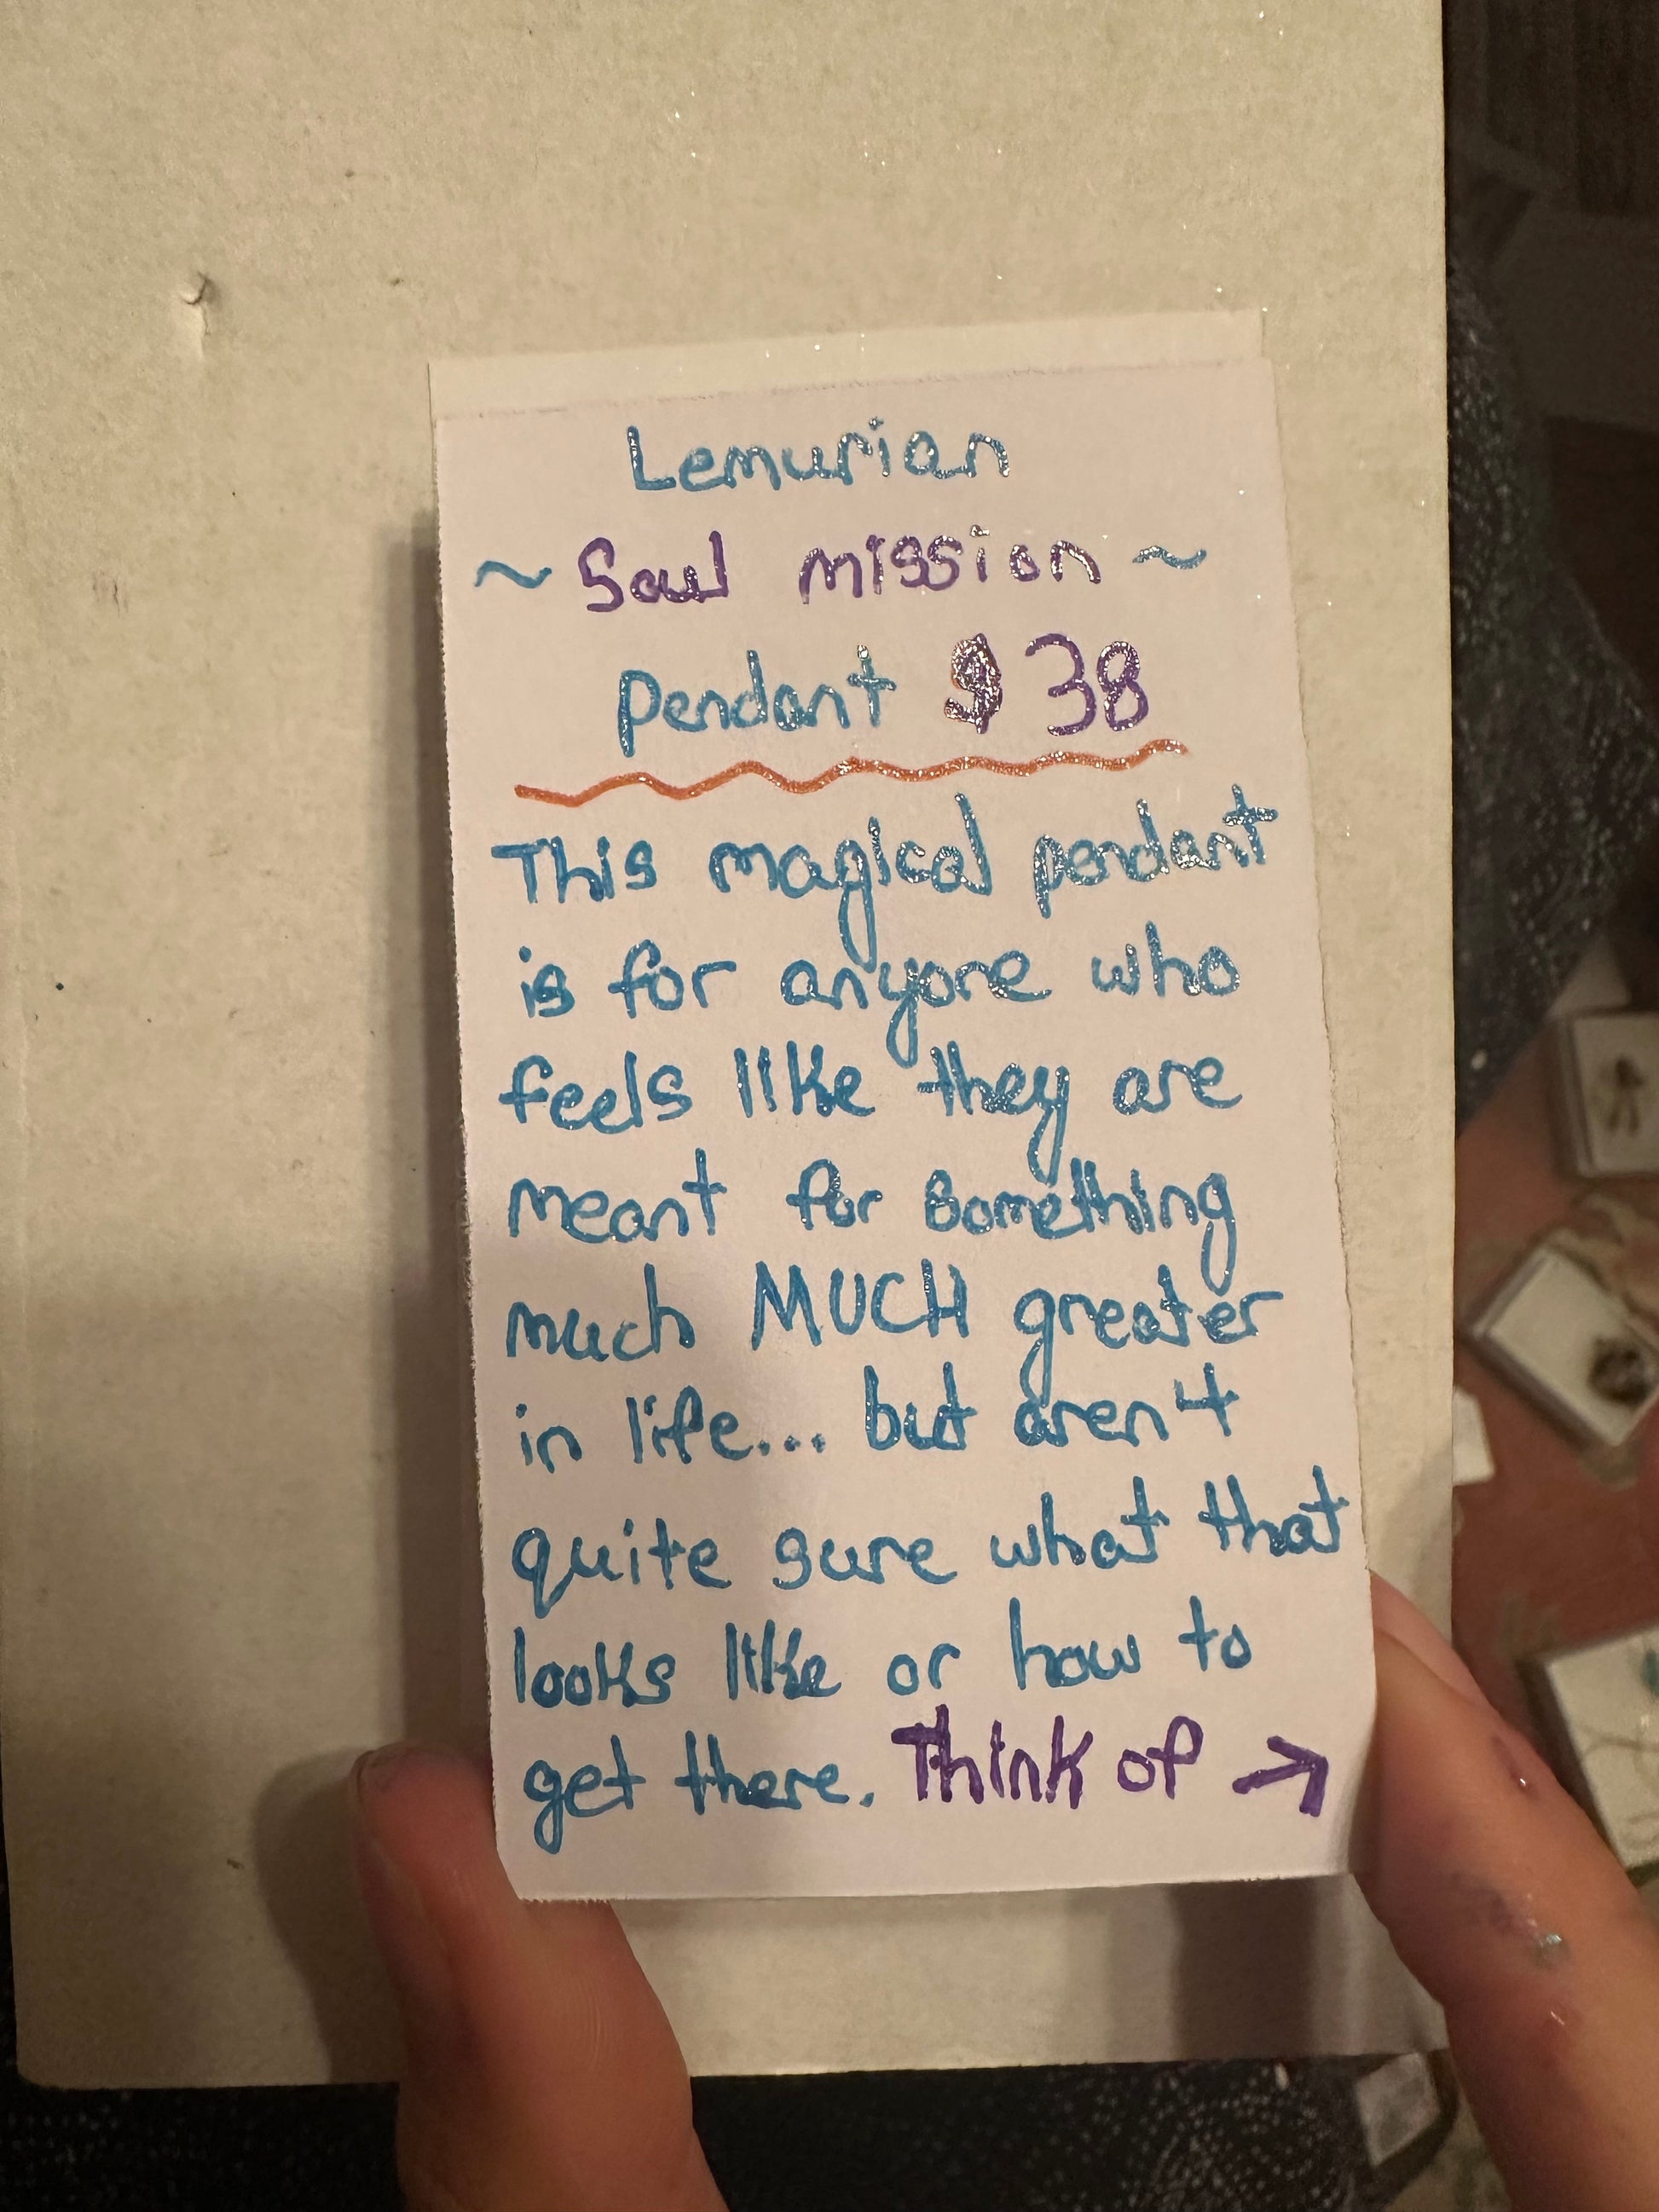 Lemurian
~ Soul mission ~
Pendant $38
This magical pendant
is for anyone who
feels like they are
meant for something
much MUCH greater
in life... but aren't
quite sure what that
looks like or how to
get there. Think of →